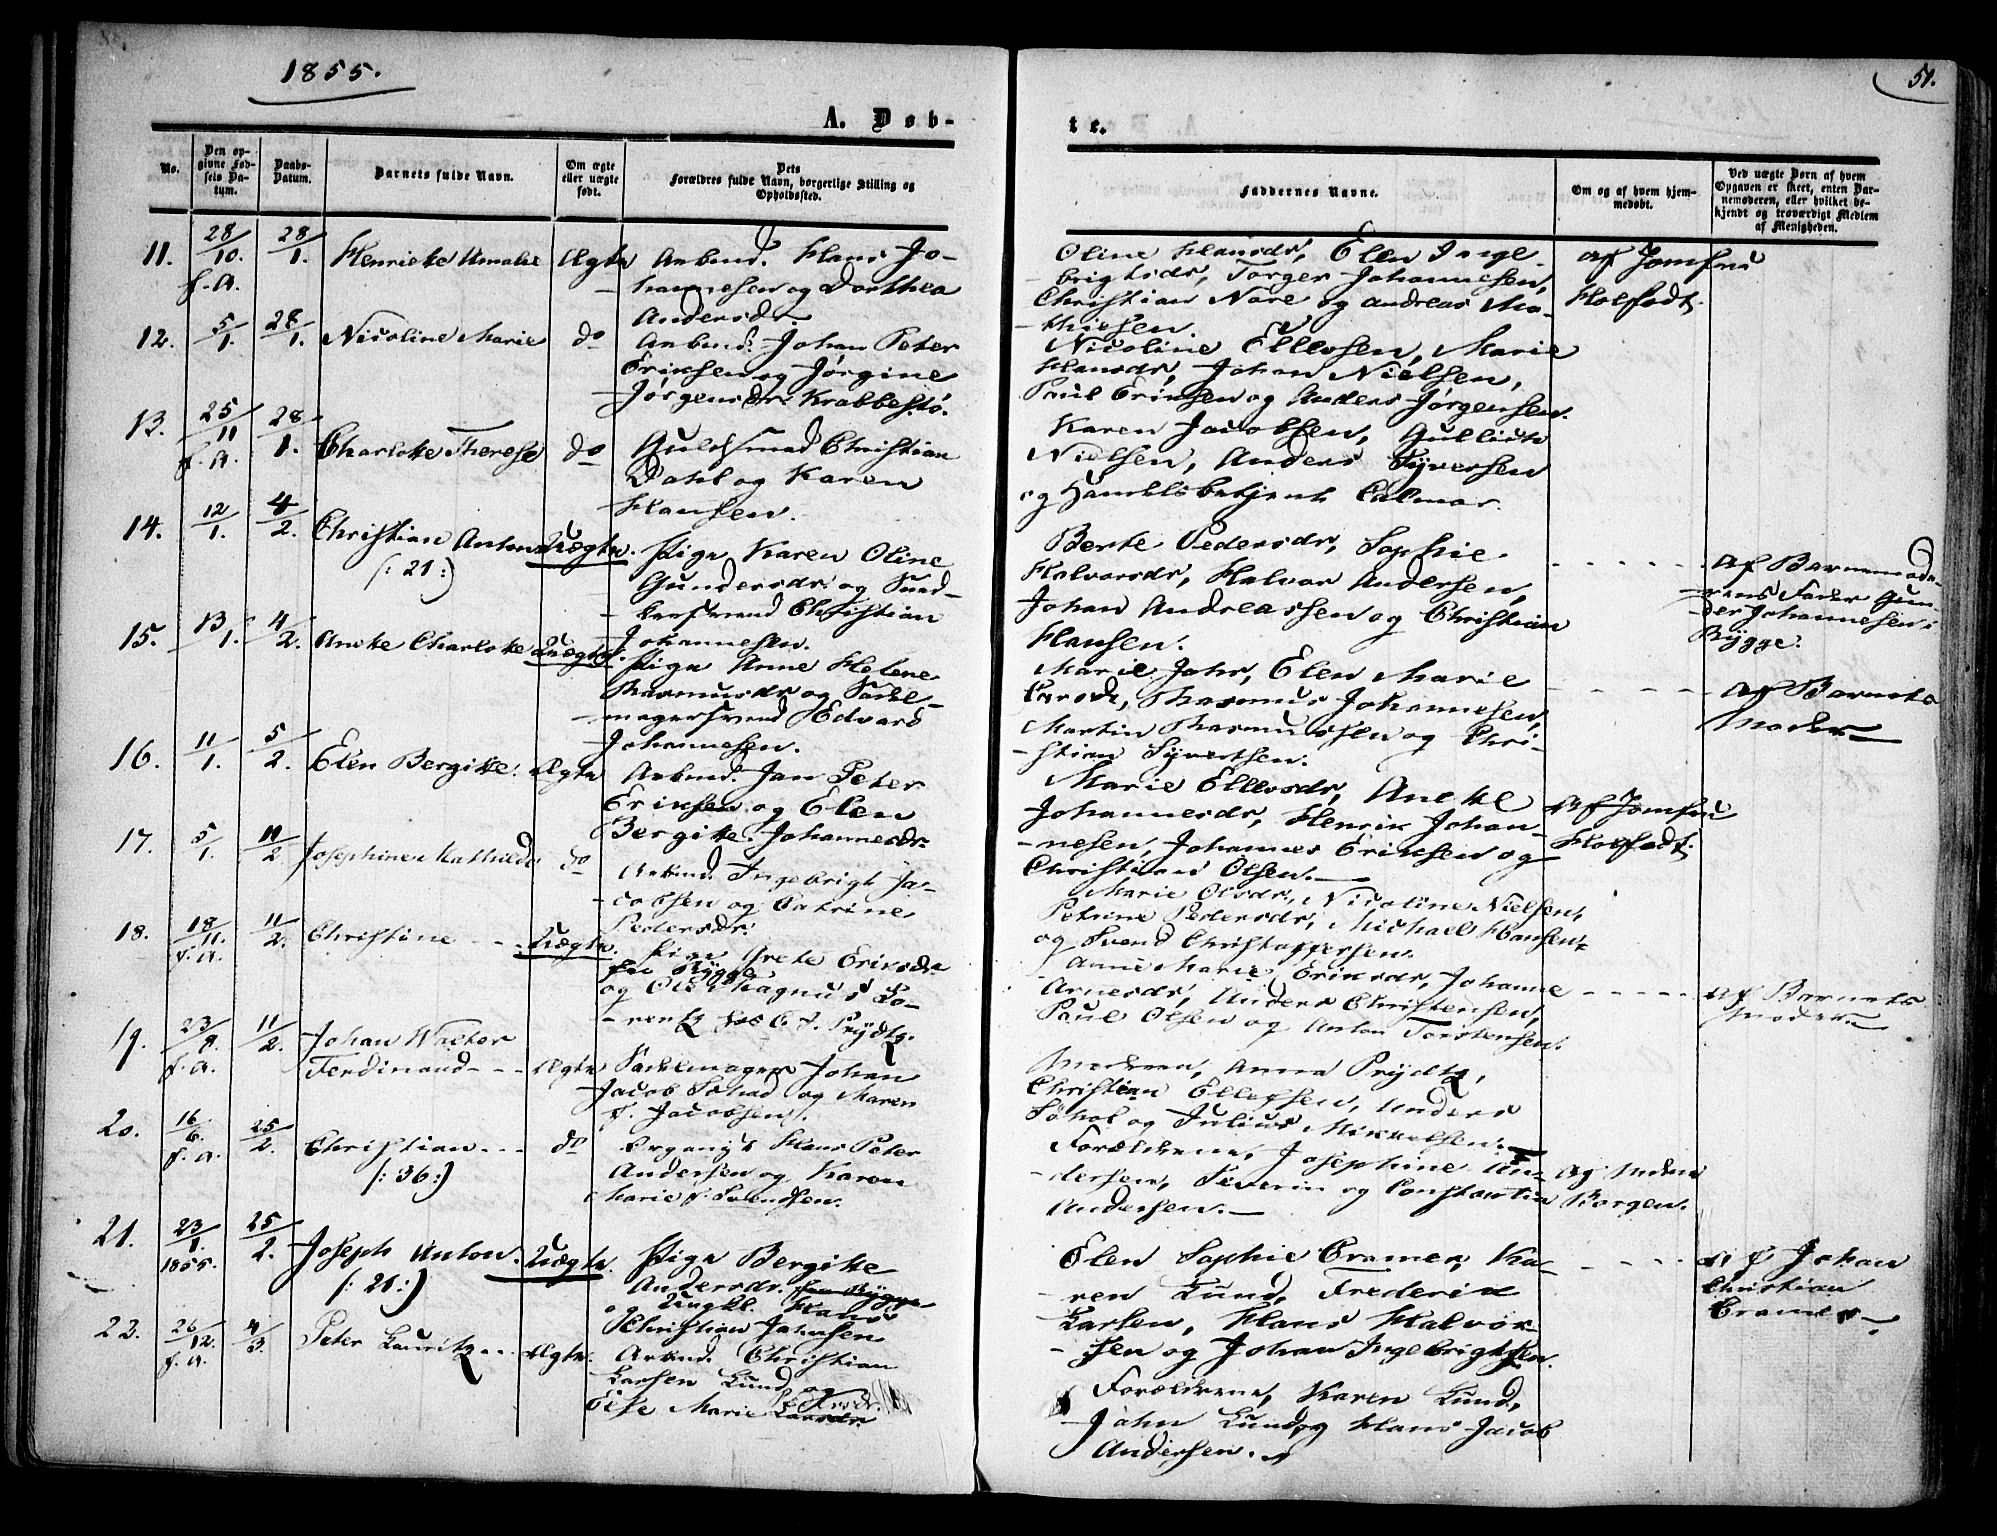 1855.
51.
A. Døb-
te.
No.
Den op-
givne Fød-
sels Da-
tum.
Daabs-
Datum.
Barnets fulde Navn.
Om ægte
eller uægte
født.
Dets
Forældres fulde Navn, borgerlige Stilling og
Opholdssted.
Faddernes Navne.
Om og af hvem hjem-
medøbt.
Ved uægte Børn af hvem
Opgaven er skeet, enten Bar-
nemoderen, eller hvilket be-
kjendt og troværdigt Medlem
af Menigheden.
11.
28/10.
f.A.
28/1.
Henriette Amalie
Ægte
Arbmd. Hans Jo-
hannesen og Dorthea
Andersdr.
Oline Hansdr, Elen Inge-
brigtsdr, Torger Johannesen,
Christian Nare og Andreas Ma-
thiesen.
Af Jomfru
Holfodt.
12.
5/1.
28/1.
Nicoline Marie
do
Arbmd. Johan Peter
Eriksen og Jørgine
Jørgensdr. Krabbestø.
Nicoline Ellefsen, Marie
Hansdr, Johan Nielsen,
Paul Eriksen og Anders Jørgensen.
13.
25/11
f.A.
28/1.
Charlotte Therese
do
Guldsmed Christian
Dahl og Karen
Hansen.
Karen Jacobsen, Gulliche
Nielsen, Anders Syversen
og Handelsbetjent Calmar.
14.
12/1.
4/2.
Christian Anton
(: 21:)
Uægte.
Pige Karen Oline
Gundersdr. og Sned-
kersvend Christian
Johannesen.
Berte Pedersdr, Sophie
Halvorsdr, Halvor Andersen,
Johan Andreassen og Christian
Hansen.
Af Barnemode-
rens Fader Gun-
der Johannesen i
Rygge.
15.
13/1.
4/2.
Anette Charlotte
Uægte.
Pige Anne Helene
Rasmusdr og Sadel-
magersvend Edvard
Johannesen.
Marie Johr, Elen Marie
Rasmus Johannesen,
Martin Rasmussen og Chri-
stian Syvertsen.
Af Barnets
Moder
16.
11/1.
5/2.
Elen Bergitte.
Ægte
Arbmd. Jan Peter
Eriksen og Elen
Bergitte Johannesdr.
Marie Ellevsdr, Anette
Johannesdr, Henrik Johan-
nesen, Johannes Eriksen og
Christian Olsen.
Af Jomfru
Holfodt.
17.
5/1.
11/2.
Josephine Mathilde
do
Arbmd. Ingebrigt Ja-
cobsen og Catrine
Pedersdr.
Marie Olsdr, Nicoline Nielsen,
Petrine Pedersdr, Michael Hansen
og Svend Christophersen.
18.
18/11.
f.A.
11/2.
Christine
Uægte.
Pige Grete Eriksdr
fra Rygge
og Ole Magnus Lo-
rentz hos C.A. Prydtz.
Anne Marie Eriksdr, Johanne
Arnesdr, Anders Christensen,
Paul Olsen og Anton Torstensen.
Af Barnets
Moder
19.
23/9.
f.A.
11/2.
Johan Walter
Ferdinand
Ægte
Sadelmager Johan
Jacob Søhol og Maren
f. Jacobsen.
Moderen, Anna Prydtz,
Christian Ellefsen, Anders
Søhol og Julius Mikkelsen.
20.
16/6.
f.A.
25/2.
Christian
(: 36:)
do
Organist Hans Peter
Andersen og Karen
Marie f. Svendsen.
Forældrene, Josephine An-
dersen, Severin og Constantin
Andersen.
Borgen.
21.
23/1.
1855.
25/2.
Joseph Anton.
(: 21:)
Uægte.
Pige Bergitte
Andersdr. fra Rygge
og Ungkl. Hans
Christian Johnsen
Elen Sophie Cramer, Ka-
ren Lund, Frederik
Larsen, Hans Halvor-
sen og Johan Ingebrigtsen.
Af Johan
Christian
Cramer.
22.
26/12.
f.A.
4/3.
Peter Lauritz
Ægte.
Arbmd. Christian
Larsen Lund og
Else Marie Larsdr.
Forældrene, Karen Lund,
John Lund og Hans Jacob
Andersen.